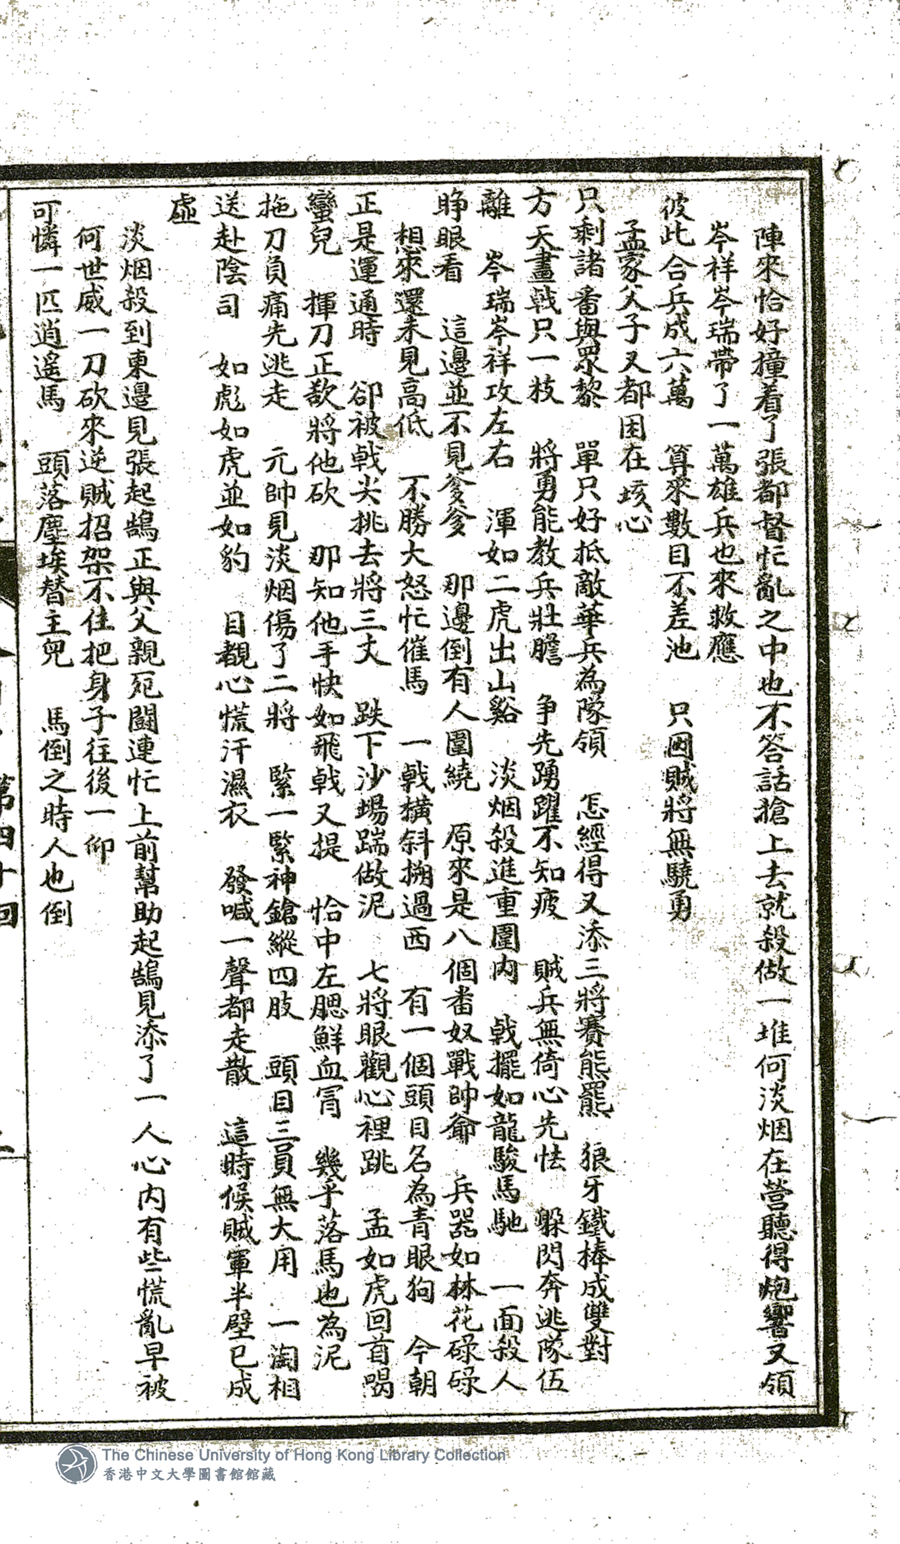 陣來恰好撞着了張都督忙亂之中也不答話搶上去就殺做一堆何淡烟在營聽得炮響又領
岑祥岑瑞帶了一萬雄兵也來救應
彼此合兵成六萬　算來數目不差池　只因賊將無驍勇
孟家父子又都困在垓心
只剩諸番與眾黎　單只好抵敵華兵為隊領　怎經得又添三將賽熊羆　狼牙鐵棒成雙對
方天畫戟只一枝　將勇能教兵壯膽　爭先踴躍不知疲　賊兵無倚心先怯　躲閃奔逃隊伍
離　岑瑞岑祥攻左右　渾如二虎出山谿　淡烟殺進重圍內　戟擺如龍駿馬馳　一面殺人
睁眼看　這邊並不見爹爹　那邊倒有人圍繞　原來是八個番奴戰帥爺　兵器如林花碌碌
想來還未見高低　不勝大怒忙催馬　一戟橫斜搠過西　有一個頭目名為青眼狗　今朝
正是運通時　卻被戟尖挑去將三丈　跌下沙場踹做泥　七將眼觀心裡跳　孟如虎回首喝
蠻兒　揮刀正欲將他砍　那知他手快如飛戟又提　恰中左腮鮮血冐　幾乎落馬也為泥
拖刀負痛先逃走　元帥見淡烟傷了二將　緊一緊神鎗縱四肢　頭目三員無大用　一淘相
送赴陰司　如彪如虎並如豹　目覩心慌汗濕衣　發喊一聲都走散　這時候賊軍半壁已成
虛
淡烟殺到東邊見張起鵠正與父親死鬪連忙上前幫助起鵠見添了一人心內有些慌亂早被
何世威一刀砍來逆賊招架不住把身子往後一仰
可憐一匹逍遥馬　頭落塵埃替主兒　馬倒之時人也倒
第四十回
The Chinese University of Hong Kong Library Collection
香港中文大學圖書館館藏